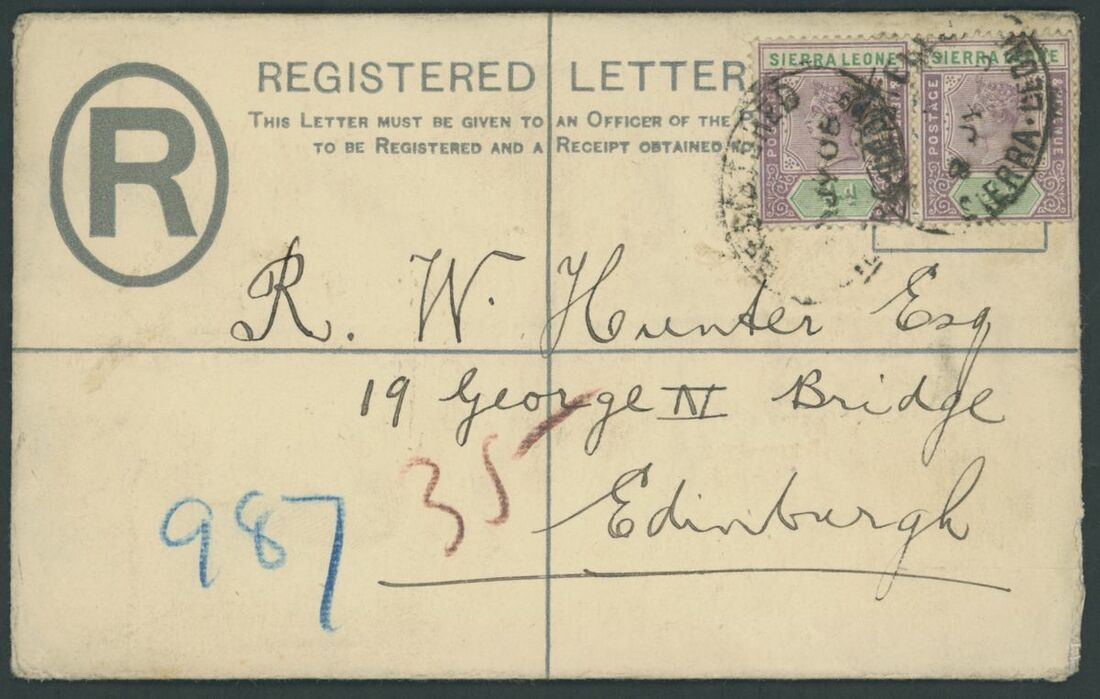 R
REGISTERED LETTER
THIS LETTER MUST BE GIVEN TO AN OFFICER OF THE P
TO BE REGISTERED AND A RECEIPT OBTAINED
SIERRA LEONE
SIERRA LEONE
POSTAGE
SIERRA·LEONE
R. W. Hunter Esq
19 George IV Bridge
Edinburgh
35
987